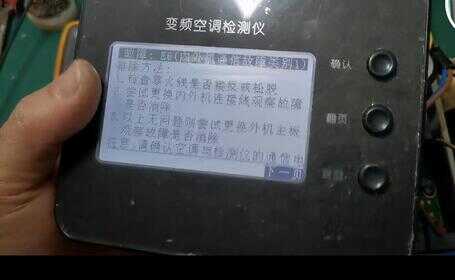 变频空调检测仪
确认
翻页
1.检查零火线是否接反或松脱
2.尝试更换内外机连接线观察故障
是否消除
3.以上无问题则尝试更换外机主板
观察故障是否消除
注意:请确认空调与检测仪的通信
下一页